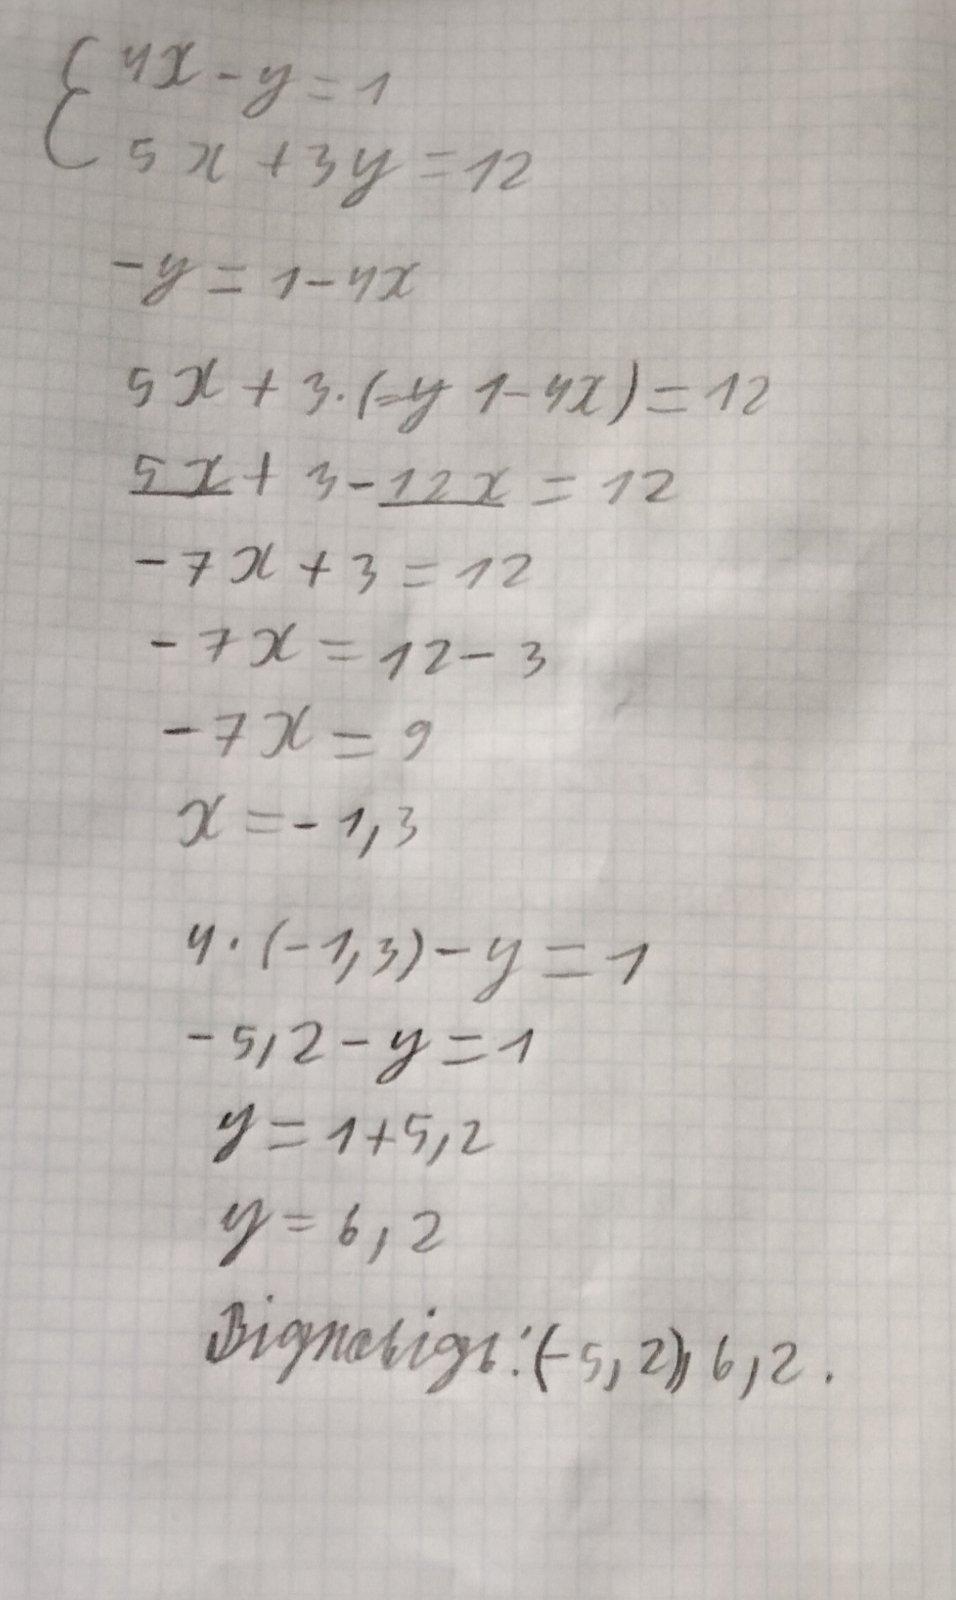 { 4x - y = 1
5x + 3y = 12
-y = 1 - 4x
5x + 3·(=y 1 - 4x) = 12
5x + 3 - 12x = 12
-7x + 3 = 12
-7x = 12 - 3
-7x = 9
x = -1,3
4·(-1,3) - y = 1
-5,2 - y = 1
y = 1 + 5,2
y = 6,2
Відповідь: (-5,2), 6,2.